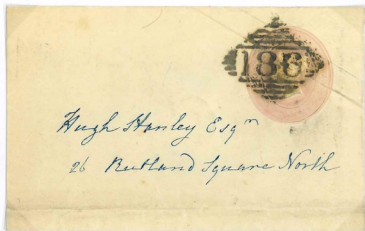 186
Hugh Hanley Esqre
26 Rutland Square North